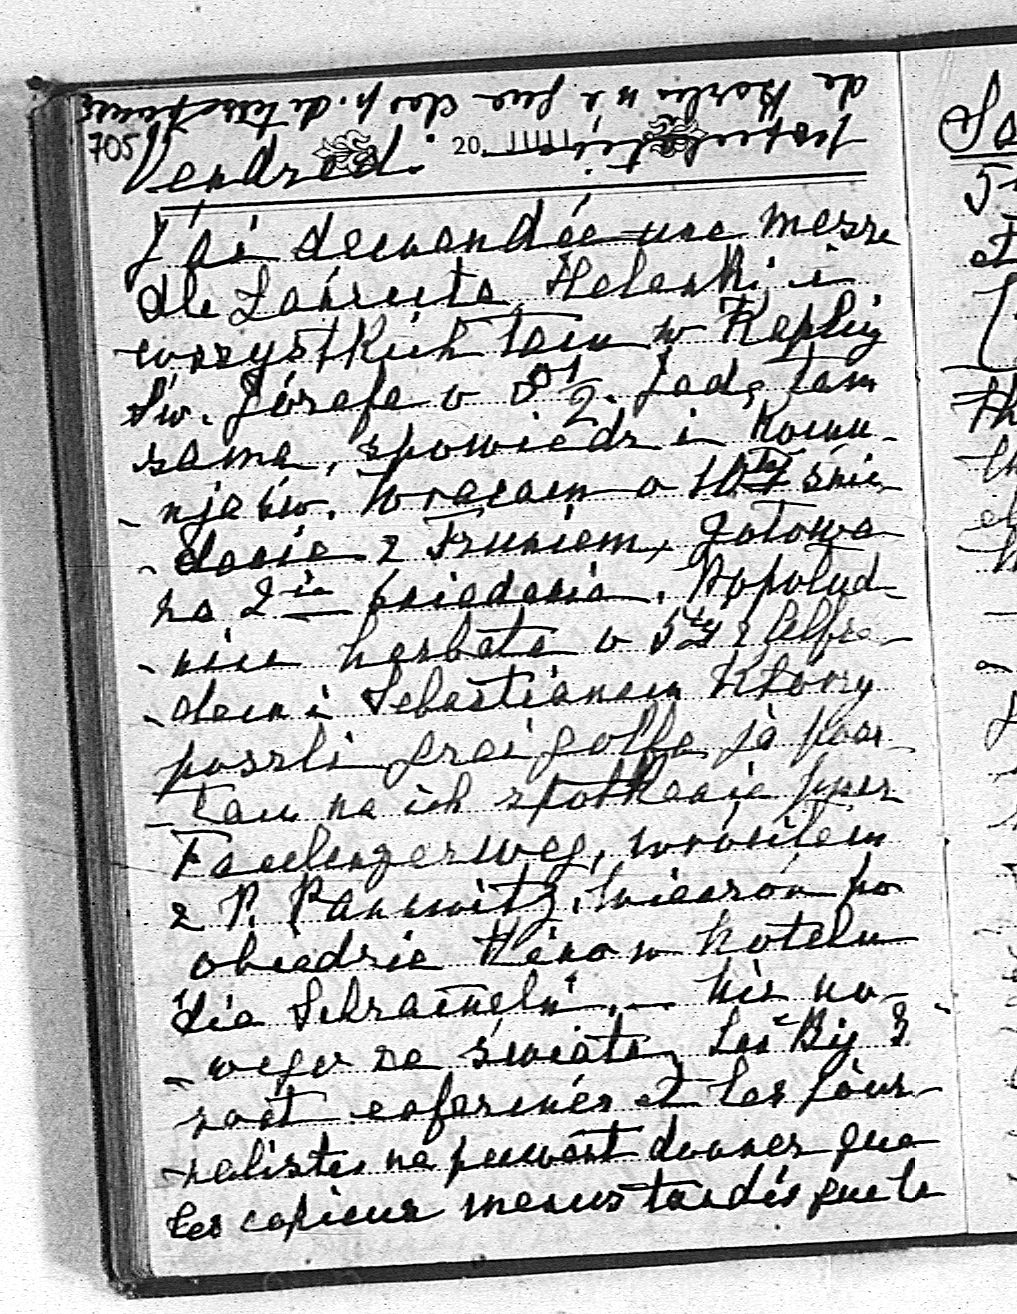 705
Vendredi. 20 JUIII
J'ai demandée une messe
dla Laśreuta, Helenki i
wszystkich tam w Kaplicy
Św. Józefa o 8 1/2. Jadę tam
sama, spowiedź i Komu-
-nja św. Wracam o 10tej śnia-
-danie z Truniem, gotowa
na 2ie śniadania. Popołud-
-niu herbata o 5tej z Alfre-
-dem i Sebastianem Którzy
poszli grai golfa, ja posz-
-łam na ich spotkanie przez
Faulenzerweg, wróciłem
z P. Pannwitz. Wieczór po
obiedzie Kino w hotelu
"Die Schratneln". — Nic no-
-wego ze świata, Les Big 3
sont enfermés et les jour-
-nalistes ne peuvent donner que
les copieux menus tandis que le
de Berlin n'a que des p. de terre